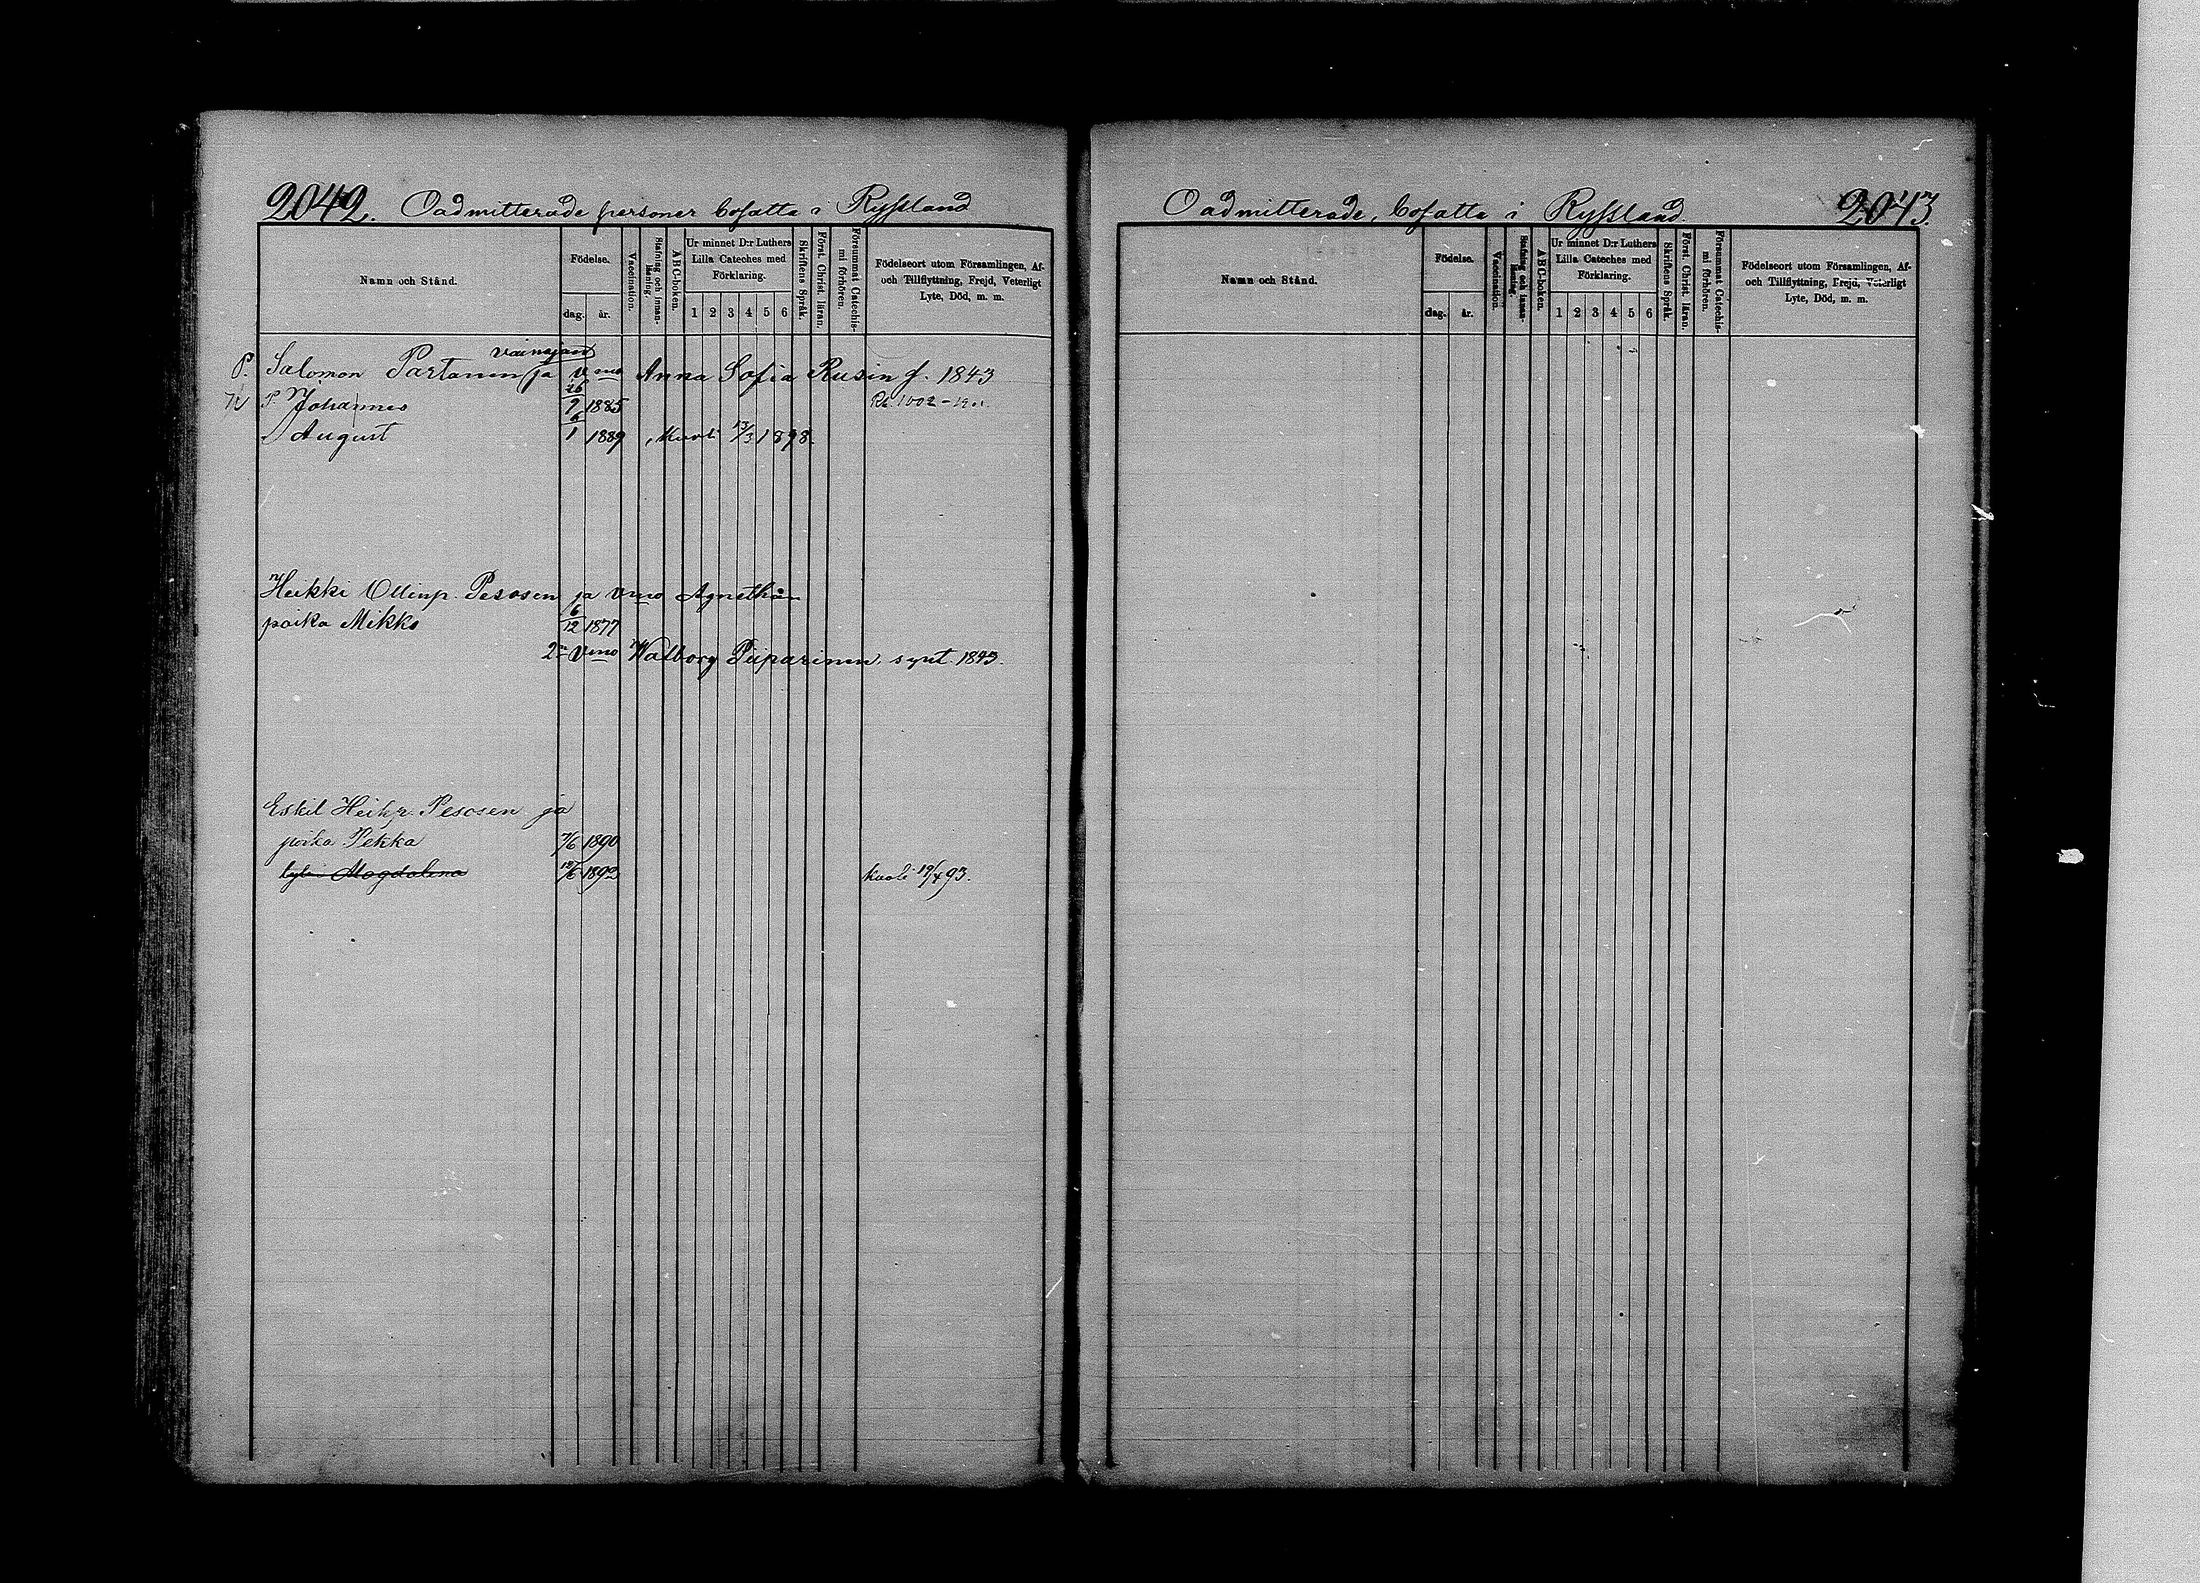 2042. Oadmitterade personer bosatta i Ryssland
Namn och Stånd.
Födelse.
dag. år.
Vaccination.
Stafning och innanläsning.
ABC-boken.
Ur minnet D:r Luthers Lilla Cateches med Förklaring.
1 2 3 4 5 6
Skriftens Språk.
Först. Christ. läran.
Försummat Catechismi förhören.
Födelseort utom Församlingen, Af- och Tillflyttning, Frejd, Veterligt Lyte, Död, m. m.
vainajan
P. Salomon Partanen ja vmo Anna Sofia Rusin f. 1843
P. Johannes 26/9 1885 Rk 1002
August 6/1 1889 Kuoli 13/3 1898.
Heikki Ollinp. Pesosen ja vmo Agnethan
poika Mikko 6/12 1877
2n vmo Walborg Piiparinen synt. 1843.
Eskil Heikp. Pesosen ja
poika Pekka 7/6 1890
tytär Magdalena /6 1892 kuoli 19/4 93.
Oadmitterade, bosatta i Ryssland. 2043.
Namn och Stånd.
Födelse.
dag. år.
Vaccination.
Stafning och innanläsning.
ABC-boken.
Ur minnet D:r Luthers Lilla Cateches med Förklaring.
1 2 3 4 5 6
Skriftens Språk.
Först. Christ. läran.
Försummat Catechismi förhören.
Födelseort utom Församlingen, Af- och Tillflyttning, Frejd, Veterligt Lyte, Död, m. m.